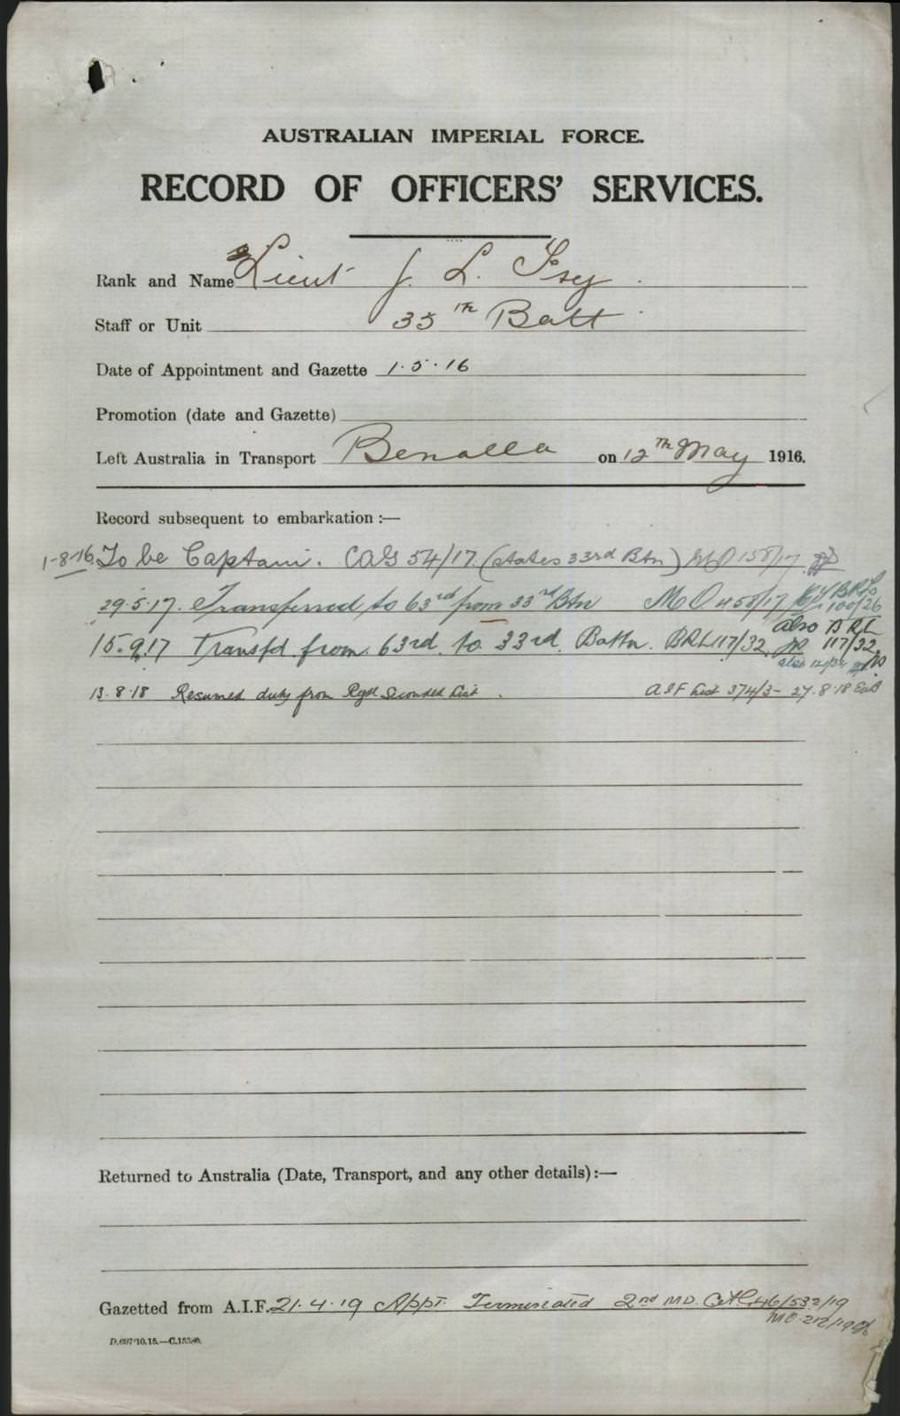 AUSTRALIAN IMPERIAL FORCE.
RECORD OF OFFICERS' SERVICES.
Rank and Name Lieut J. L. Fry
Staff or Unit 33th Batt
Date of Appointment and Gazette 1.5.16
Promotion (date and Gazette)
Left Australia in Transport Benalla on 12th May 1916.
Record subsequent to embarkation :—
1-8-16 To be Captain. CAG 54/17. (states 33rd Btn) 158/17
29.5.17. Transferred to 63rd from 33rd Btn MO 458/17 BRL 100/26
15.9.17 Transfd from 63rd to 33rd Battn. BRL 117/32 also BRL 117/32
13.8.18 Resumed duty from Seconded List. AIF List 374/3- 27.8.18
Returned to Australia (Date, Transport, and any other details):—
Gazetted from A.I.F. 21.4.19 Appt. Terminated 2nd MD. 46/532/19
MO 212/19